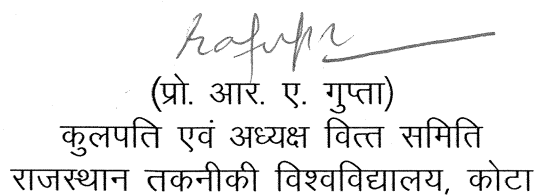 (प्रो. आर. ए. गुप्ता)
कुलपति एवं अध्यक्ष वित्त समिति
राजस्थान तकनीकी विश्वविद्यालय, कोटा